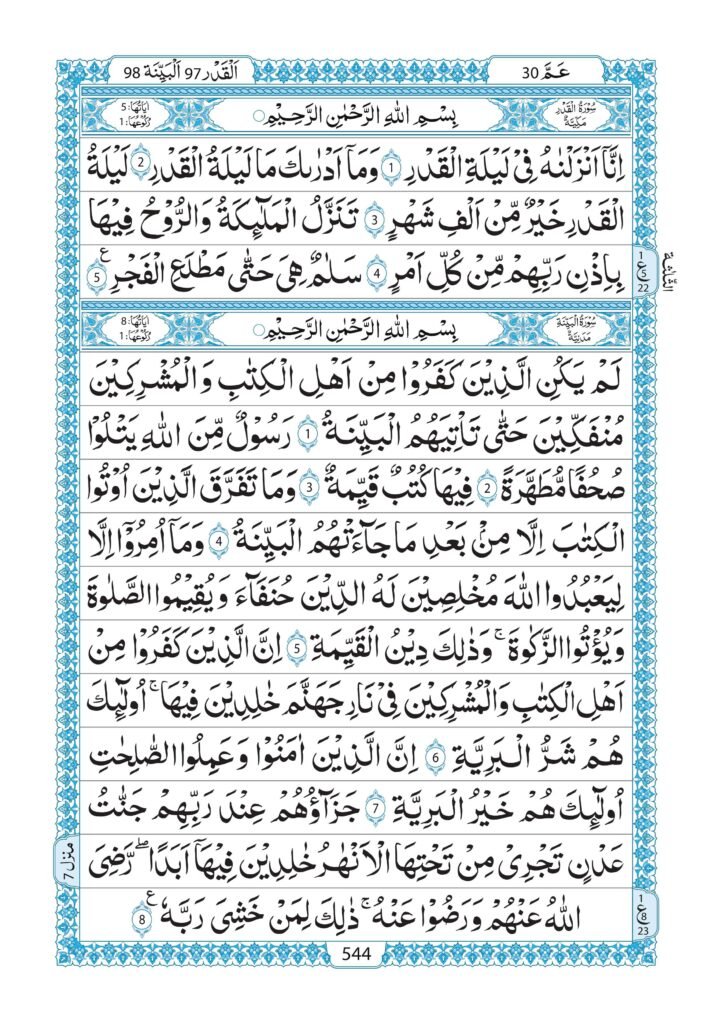 عَمَّ 30
اَلْقَدْر 97 اَلْبَيِّنَة 98
سُوْرَةُ الْقَدْرِ مَكِّيَّةٌ
بِسْمِ اللّٰهِ الرَّحْمٰنِ الرَّحِيْمِ
اٰيَاتُهَا: 5
رُكُوْعُهَا: 1
اِنَّاۤ اَنْزَلْنٰهُ فِيْ لَيْلَةِ الْقَدْرِ 1 وَمَاۤ اَدْرٰىكَ مَا لَيْلَةُ الْقَدْرِ 2 لَيْلَةُ
الْقَدْرِ خَيْرٌ مِّنْ اَلْفِ شَهْرٍ 3 تَنَزَّلُ الْمَلٰٓئِكَةُ وَالرُّوْحُ فِيْهَا
بِاِذْنِ رَبِّهِمْ مِّنْ كُلِّ اَمْرٍ 4 سَلٰمٌ هِيَ حَتّٰى مَطْلَعِ الْفَجْرِ 5 ع
1
ع 5
22
سُوْرَةُ الْبَيِّنَةِ مَدَنِيَّةٌ
بِسْمِ اللّٰهِ الرَّحْمٰنِ الرَّحِيْمِ
اٰيَاتُهَا: 8
رُكُوْعُهَا: 1
لَمْ يَكُنِ الَّذِيْنَ كَفَرُوْا مِنْ اَهْلِ الْكِتٰبِ وَالْمُشْرِكِيْنَ
مُنْفَكِّيْنَ حَتّٰى تَاْتِيَهُمُ الْبَيِّنَةُ 1 رَسُوْلٌ مِّنَ اللّٰهِ يَتْلُوْا
صُحُفًا مُّطَهَّرَةً 2 فِيْهَا كُتُبٌ قَيِّمَةٌ 3 وَمَا تَفَرَّقَ الَّذِيْنَ اُوْتُوا
الْكِتٰبَ اِلَّا مِنْۢ بَعْدِ مَا جَآءَتْهُمُ الْبَيِّنَةُ 4 وَمَاۤ اُمِرُوْۤا اِلَّا
لِيَعْبُدُوا اللّٰهَ مُخْلِصِيْنَ لَهُ الدِّيْنَ حُنَفَآءَ وَيُقِيْمُوا الصَّلٰوةَ
وَيُؤْتُوا الزَّكٰوةَ ۚ وَذٰلِكَ دِيْنُ الْقَيِّمَةِ 5 اِنَّ الَّذِيْنَ كَفَرُوْا مِنْ
اَهْلِ الْكِتٰبِ وَالْمُشْرِكِيْنَ فِيْ نَارِ جَهَنَّمَ خٰلِدِيْنَ فِيْهَا ۚ اُولٰٓئِكَ
هُمْ شَرُّ الْبَرِيَّةِ 6 اِنَّ الَّذِيْنَ اٰمَنُوْا وَعَمِلُوا الصّٰلِحٰتِ
اُولٰٓئِكَ هُمْ خَيْرُ الْبَرِيَّةِ 7 جَزَآؤُهُمْ عِنْدَ رَبِّهِمْ جَنّٰتُ
عَدْنٍ تَجْرِيْ مِنْ تَحْتِهَا الْاَنْهٰرُ خٰلِدِيْنَ فِيْهَاۤ اَبَدًا ۖ رَضِيَ
منزل 7
اللّٰهُ عَنْهُمْ وَرَضُوْا عَنْهُ ۚ ذٰلِكَ لِمَنْ خَشِيَ رَبَّهٗ 8 ع
1
ع 8
23
544